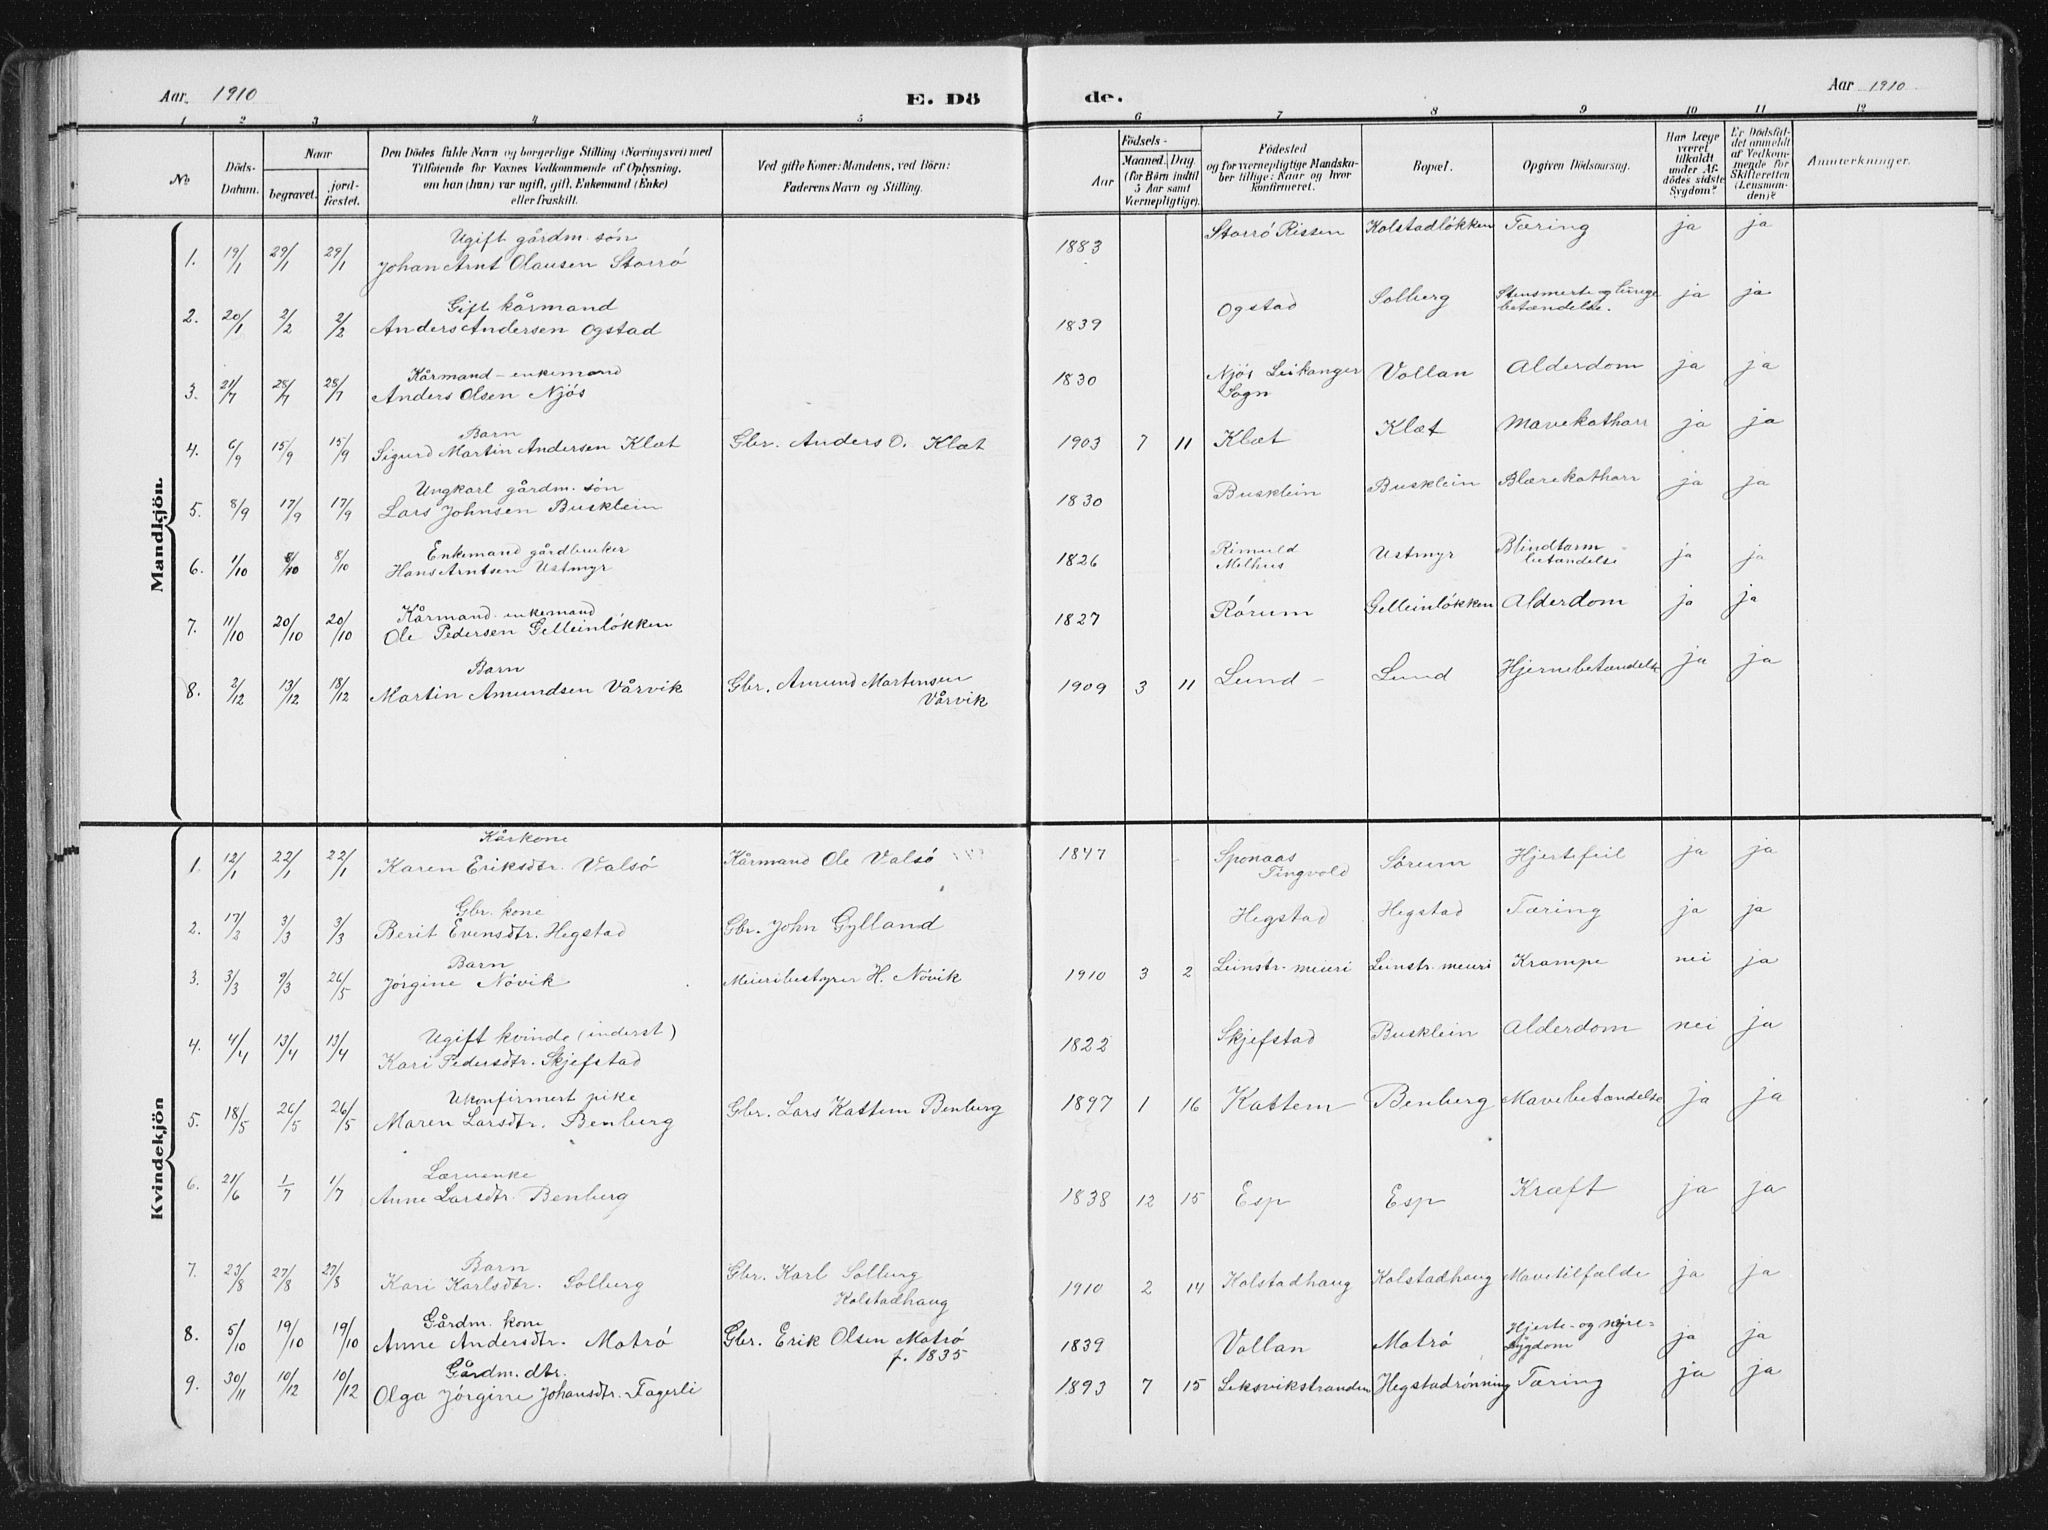 Aar. 1910 E. Dö de. Aar 1910
1 2 3 4 5 6 7 8 9 10 11 12
No. Döds-Datum. Naar begravet. jord-fæstet. Den Dödes fulde Navn og borgerlige Stilling (Næringsvei) med Tilföiende for Voxnes Vedkommende af Oplysning, om han (hun) var ugift, gift, Enkemand (Enke) eller fraskilt. Ved gifte Koner: Mandens, ved Börn: Faderens Navn og Stilling. Födsels- Aar Maaned. Dag. (for Börn indtil 5 Aar samt Værnepligtige). Födested og for værnepligtige Mandskaber tillige: Naar og hvor konfirmeret. Bopæl. Opgiven Dödsaarsag. Har Læge været tilkaldt under Afdödes sidste Sygdom? Er Dödsfaldet anmeldt af Vedkommende for Skifteretten (Lensmanden)? Anmerkninger.
Mandkjön.
1. 19/1 29/1 29/1 Ugift gårdm. sön Johan Arnt Olausen Storrö 1883 Storrö Rissen Kolstadlökken Tæring ja ja
2. 20/1 2/2 2/2 Gift kårmand Anders Andersen Ogstad 1839 Ogstad Solberg Stensmerte og lungebetændelse. ja ja
3. 21/7 28/7 28/7 Kårmand - enkemand Anders Olsen Njös 1830 Njös Leikanger Sogn Vollan Alderdom ja ja
4. 6/9 15/9 15/9 Barn Sigurd Martin Andersen Klæt Gbr. Anders O. Klæt 1903 7 11 Klæt Klæt Mavekatharr ja ja
5. 8/9 17/9 17/9 Ungkarl gårdm. sön Lars Johnsen Busklein 1830 Busklein Busklein Blærekatharr ja ja
6. 1/10 8/10 8/10 Enkemand gårdbruker Hans Arntsen Ustmyr 1826 Rimuld Melhus Ustmyr Blindtarm-betændelse ja ja
7. 11/10 20/10 20/10 Kårmand - enkemand Ole Pedersen Gelleinlökken 1827 Rörum Gelleinlökken Alderdom ja ja
8. 2/12 13/12 18/12 Barn Martin Amundsen Vårvik Gbr. Amund Martinsen Vårvik 1909 3 11 Lund - Lund Hjernebetændelse ja ja
Kvindekjön
1. 12/1 22/1 22/1 Kårkone Karen Eriksdtr. Valsö Kårmand Ole Valsö 1847 Sponaas Tingvold Sörum Hjertefeil ja ja
2. 17/2 3/3 3/3 Gbr. kone Berit Evensdtr. Hegstad Gbr. John Gylland Hegstad Hegstad Tæring ja ja
3. 3/3 9/3 26/5 Barn Jörgine Növik Meieribestyrer H. Növik 1910 3 2 Leinstr. meieri Leinstr. meieri Krampe nei ja
4. 4/4 13/4 13/4 Ugift kvinde (inderst) Kari Pedersdtr. Skjefstad 1822 Skjefstad Busklein Alderdom nei ja
5. 18/5 26/5 26/5 Ukonfirmert pike Maren Larsdtr. Benberg Gbr. Lars Kattem Benberg 1897 1 16 Kattem Benberg Mavebetændelse ja ja
6. 21/6 1/7 1/7 Lærerenke Anne Larsdtr. Benberg 1838 12 15 Esp Esp Kræft ja ja
7. 23/8 27/8 27/8 Barn Kari Karlsdtr. Solberg Gbr. Karl Solberg Kolstadhaug 1910 2 14 Kolstadhaug Kolstadhaug Mavetilfælde ja ja
8. 5/10 19/10 19/10 Gårdm. kone Anne Andersdtr. Moträ Gbr. Erik Olsen Moträ f. 1835 1839 Vollan Moträ Hjerte- og nyre-sygdom ja ja
9. 30/11 10/12 10/12 Gårdm. dtr. Olga Jörgine Johansdtr. Fagerli 1893 7 15 Leksvikstranden Hegstadrönning Tæring ja ja